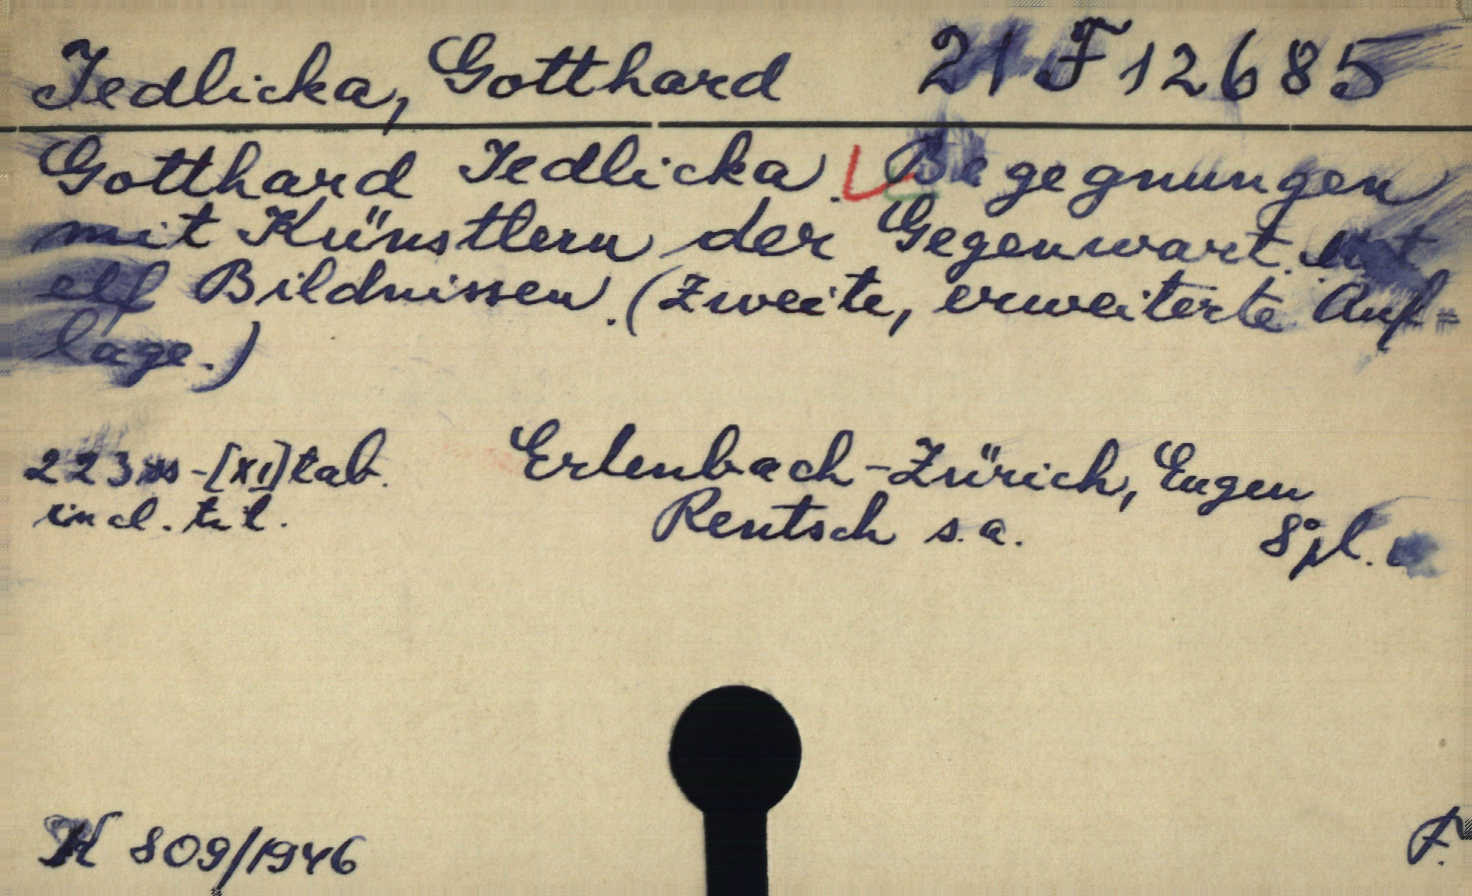 Jedlicka, Gotthard 21 F 12685
Gotthard Jedlicka. Begegnungen
mit Künstlern der Gegenwart. Mit
elf Bildnissen. (Zweite, erweiterte Auf=
lage.)
223 ss -[XI] tab. Erlenbach-Zürich, Eugen
incl. tit. Rentsch s.a. 8° pl.
K 809/1946 F.